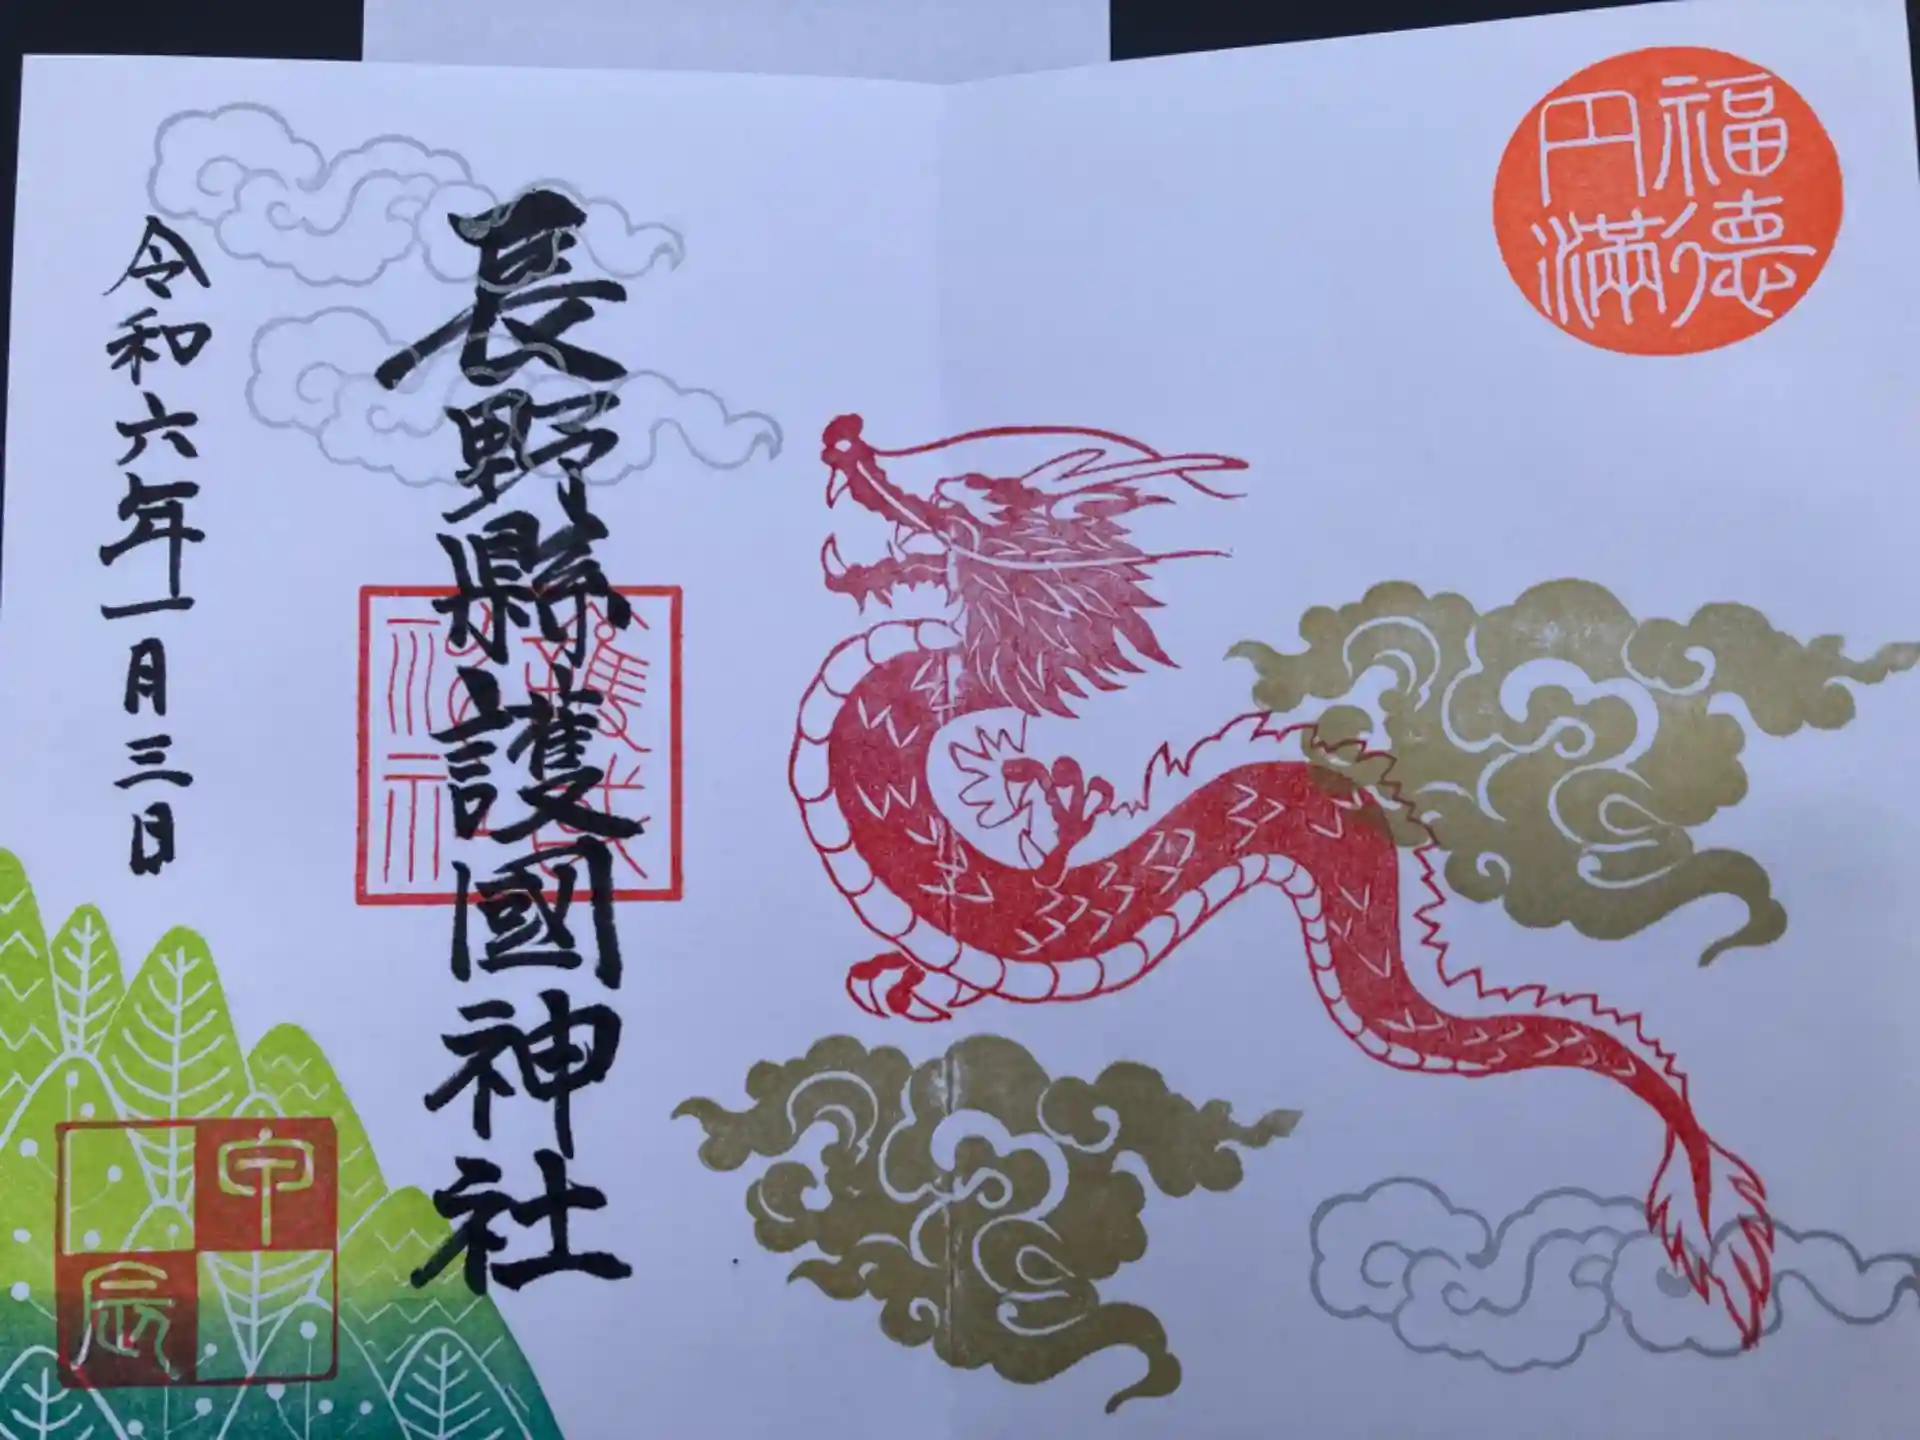 福德
円滿
長野縣護國神社
令和六年一月三日
甲
辰